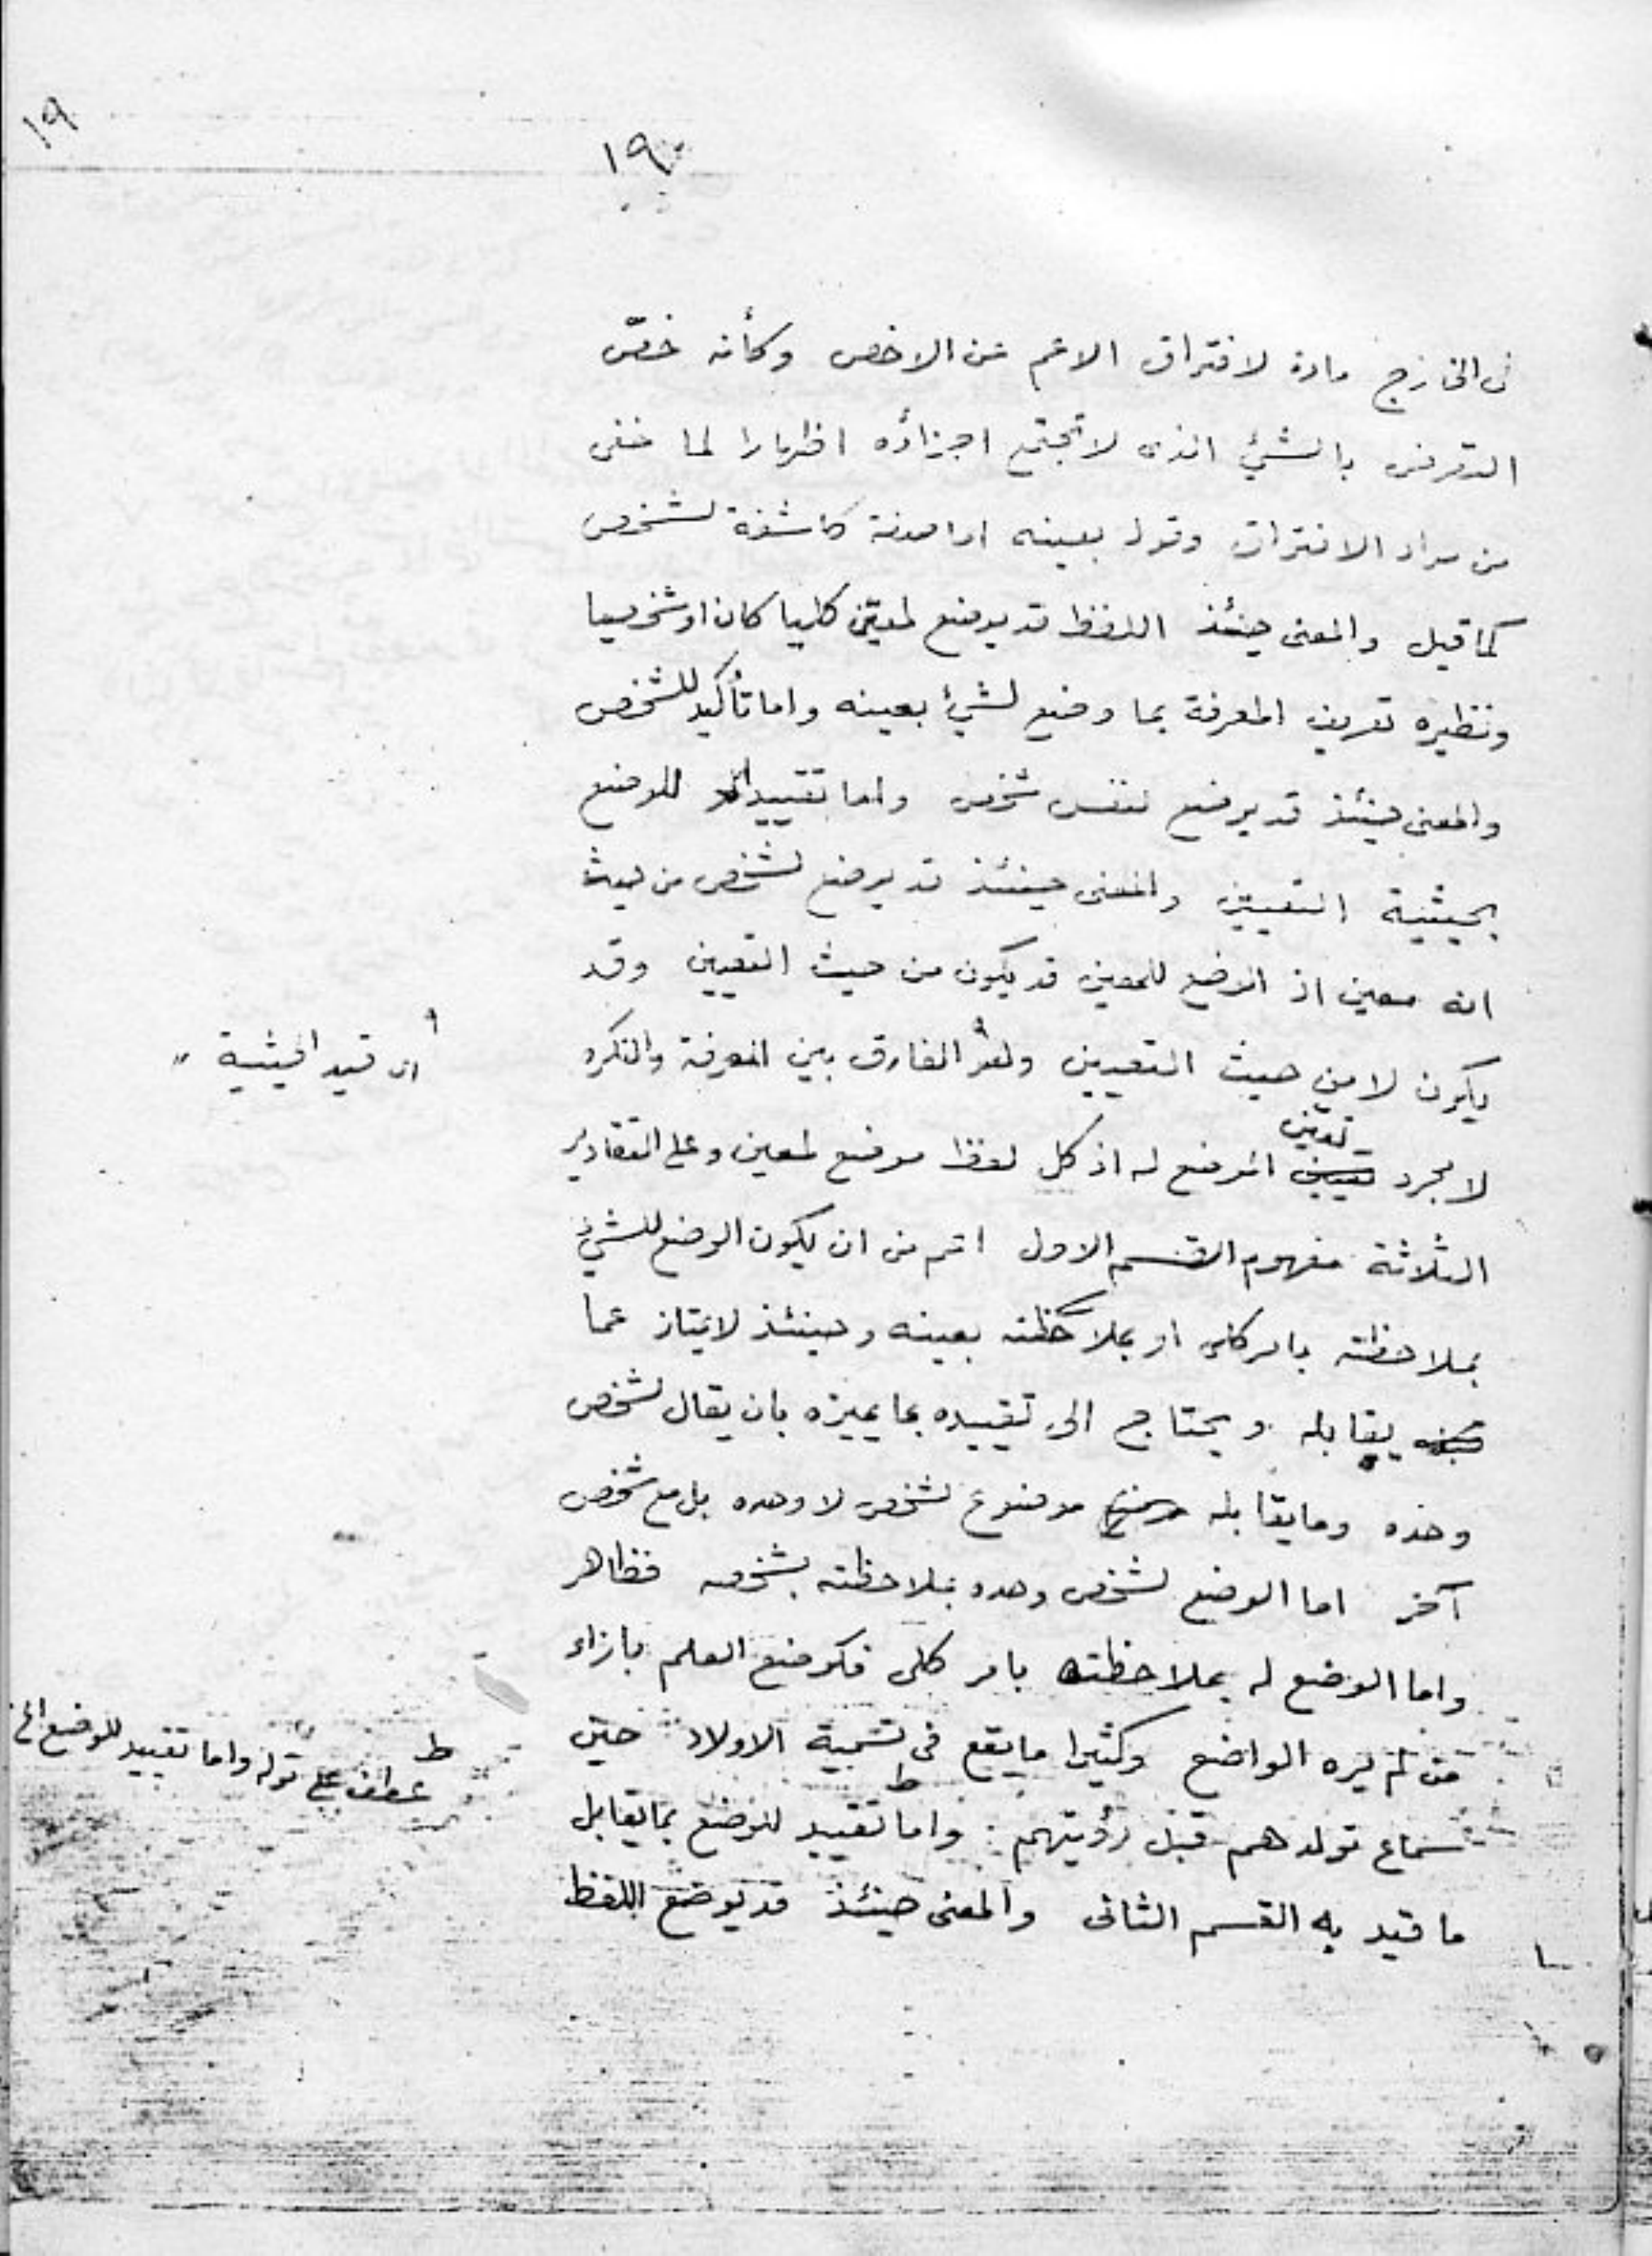 ١٩
١٩
فى الخارج مادة لافتراق الاعم عن الاخص وكأنه خصّ
التعرض بالشئ الذى لا تجتمع اجزاؤه اظهارا لما خفى
من مراد الافتراق وقوله بعينه اما صفة كاشفة لشخص
كما قيل والمعنى حينئذ اللفظ قد يوضع لمعيّن كليا كان او شخصيا
ونظيره تعريف المعرفة بما وضع لشئ بعينه واما تأكيد للشخص
والمعنى حينئذ قد يوضع لنفس شخص واما تقييد للوضع
بحيثية التعيين والمعنى حينئذ قد يوضع لشخص من حيث
انه معين اذ الوضع للمعين قد يكون من حيث التعيين وقد
يكون لا من حيث التعيين وهو الفارق بين المعرفة والنكره
اى قيد الحيثية
لا مجرد تعيّن الموضع له اذ كل لفظ موضع لمعين وعلى التقادير
الثلاثة مفهوم القسم الاول اعم من ان يكون الوضع للشئ
بملاحظته بامر كلى او بملاحظته بعينه وحينئذ لا يمتاز عما
يقابله ويحتاج الى تقييده بما يميزه بان يقال لشخص
وحده وما يقابله موضوع لشخص لا وحده بل مع شخص
آخر اما الوضع لشخص وحده بملاحظته بشخصه فظاهر
واما الوضع له بملاحظته بامر كلى فكوضع العلم بازاء
من لم يره الواضع وكثيرا ما يقع فى تسمية الاولاد حين
سماع تولدهم قبل رؤيتهم واما تقييد للوضع بما يقابل
ط
ط
عطف على قوله واما تقييد للوضع الخ
ما قيد به القسم الثانى والمعنى حينئذ قد يوضع اللفظ